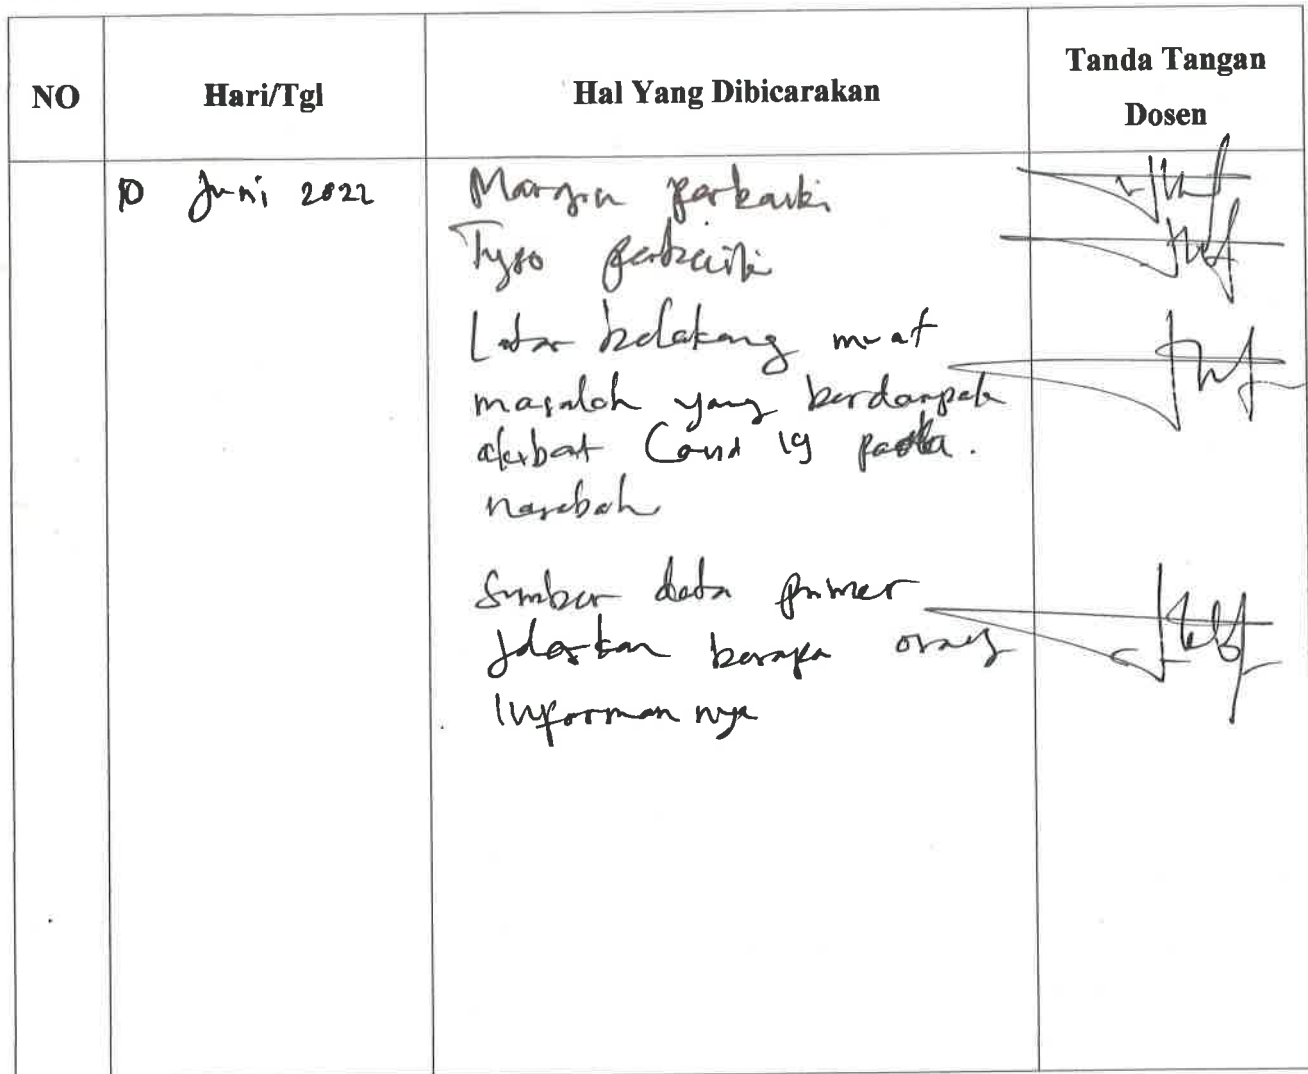 NO Hari/Tgl Hal Yang Dibicarakan Tanda Tangan Dosen
10 Juni 2022
Margin perbaiki
Typo perbaiki
Latar belakang muat
masalah yang berdampak
akibat Covid 19 pada.
nasabah
Sumber data primer
Jelaskan berapa orang
Informan nya